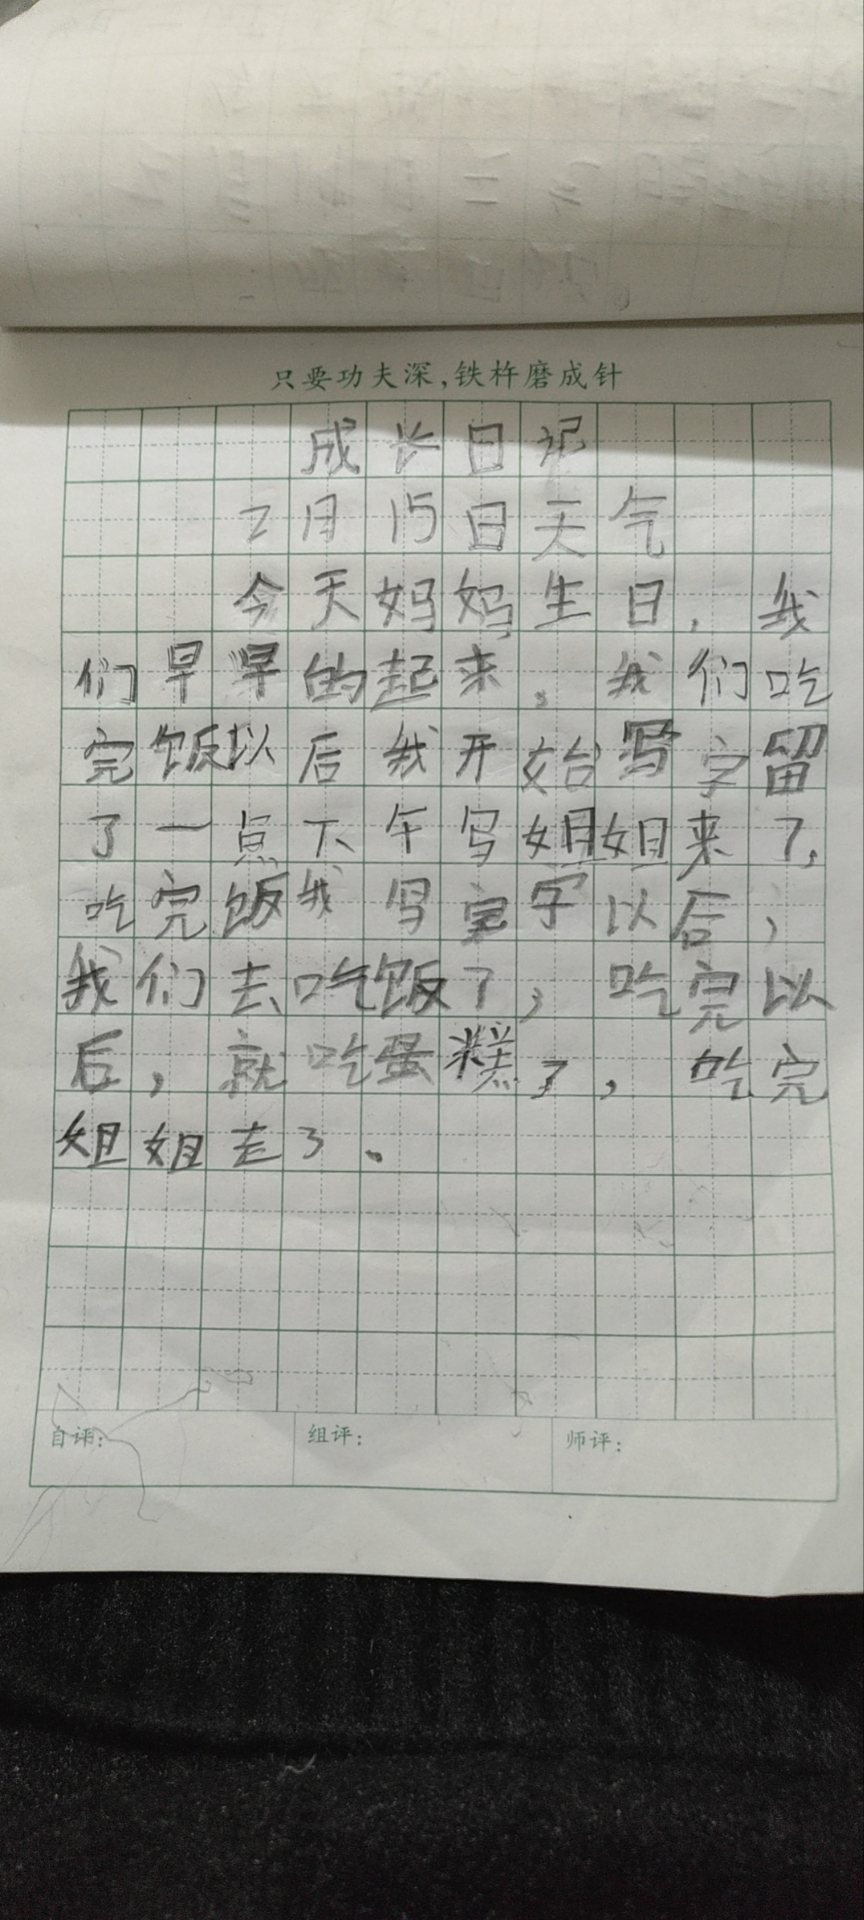 只要功夫深,铁杵磨成针
成长日记
2月15日天气
今天妈妈生日,我
们早早的起来。我们吃
完饭以后我开始写字留
了一点下午写姐姐来了,
吃完饭我写完字以后,
我们去吃饭了,吃完以
后,就吃蛋糕了,吃完
姐姐走了。
自评: 组评: 师评: